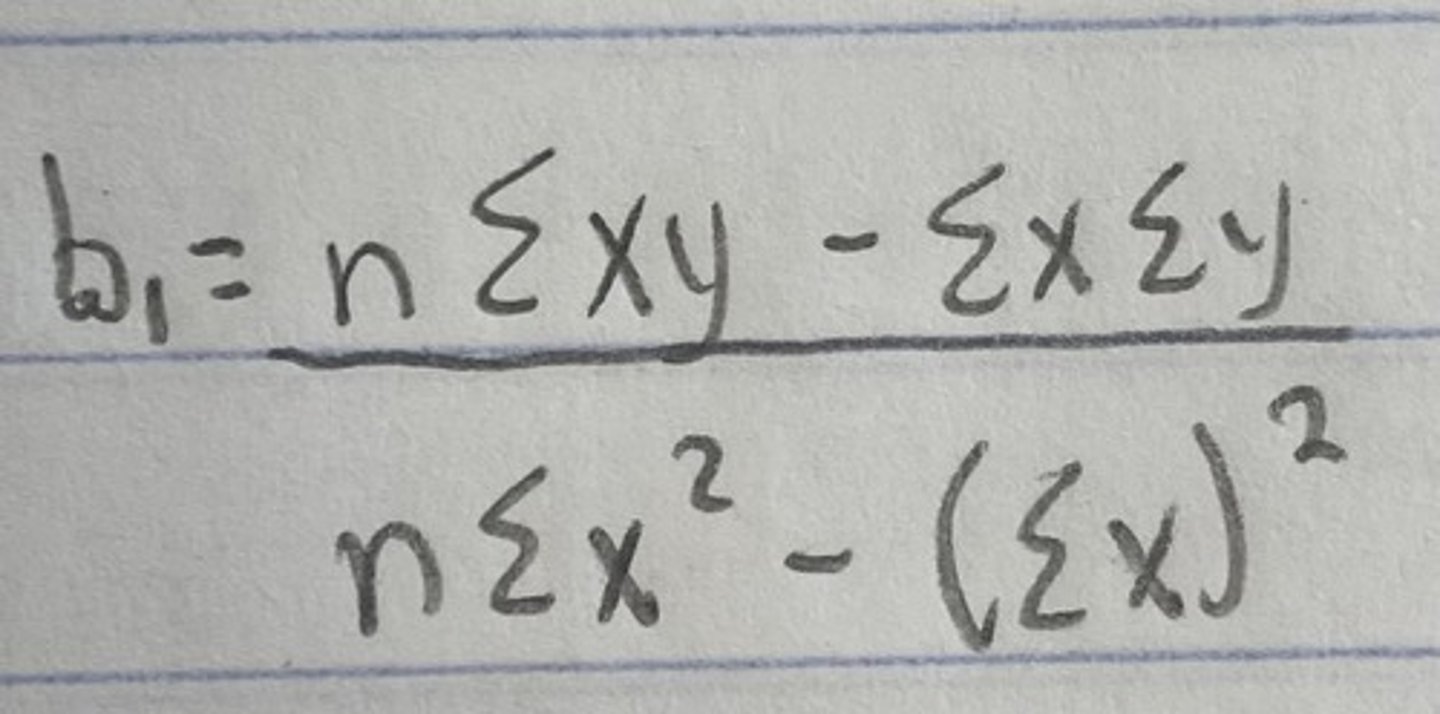 b₁ = n Σxy - Σx Σy
nΣx² - (Σx)²